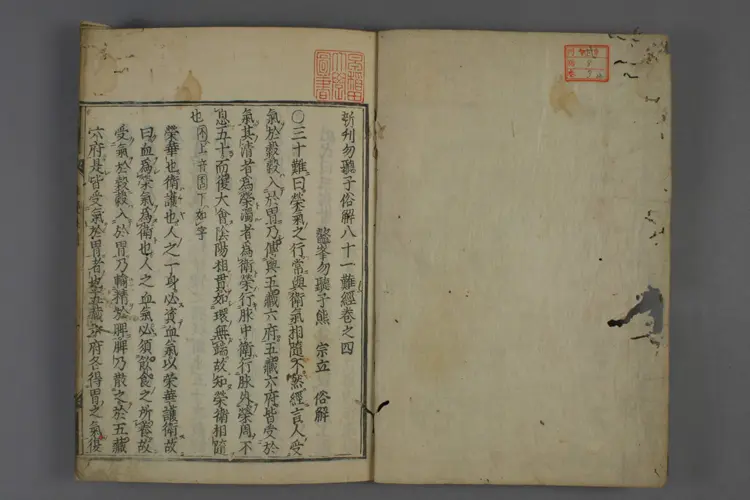 新刊勿聽子俗解八十一難經卷之四
鼇峯勿聽子熊 宗立 俗解
○三十難曰榮氣之行常與衛氣相隨不然經言人受
氣於穀穀入於胃乃傳與五藏六府五藏六府皆受於
氣其清者為榮濁者為衛榮行脉中衛行脉外榮周不
息五十而復大會陰陽相貫如環無端故知榮衛相隨
也
榮華也衛護也人之一身必資血氣以榮華護衛故
曰血為榮氣為衛也人之血氣必須飲食之所養故
受氣於穀穀入於胃乃輸精於脾脾乃散之於五藏
六府是皆受氣於胃者也五藏六府各得胃之氣復